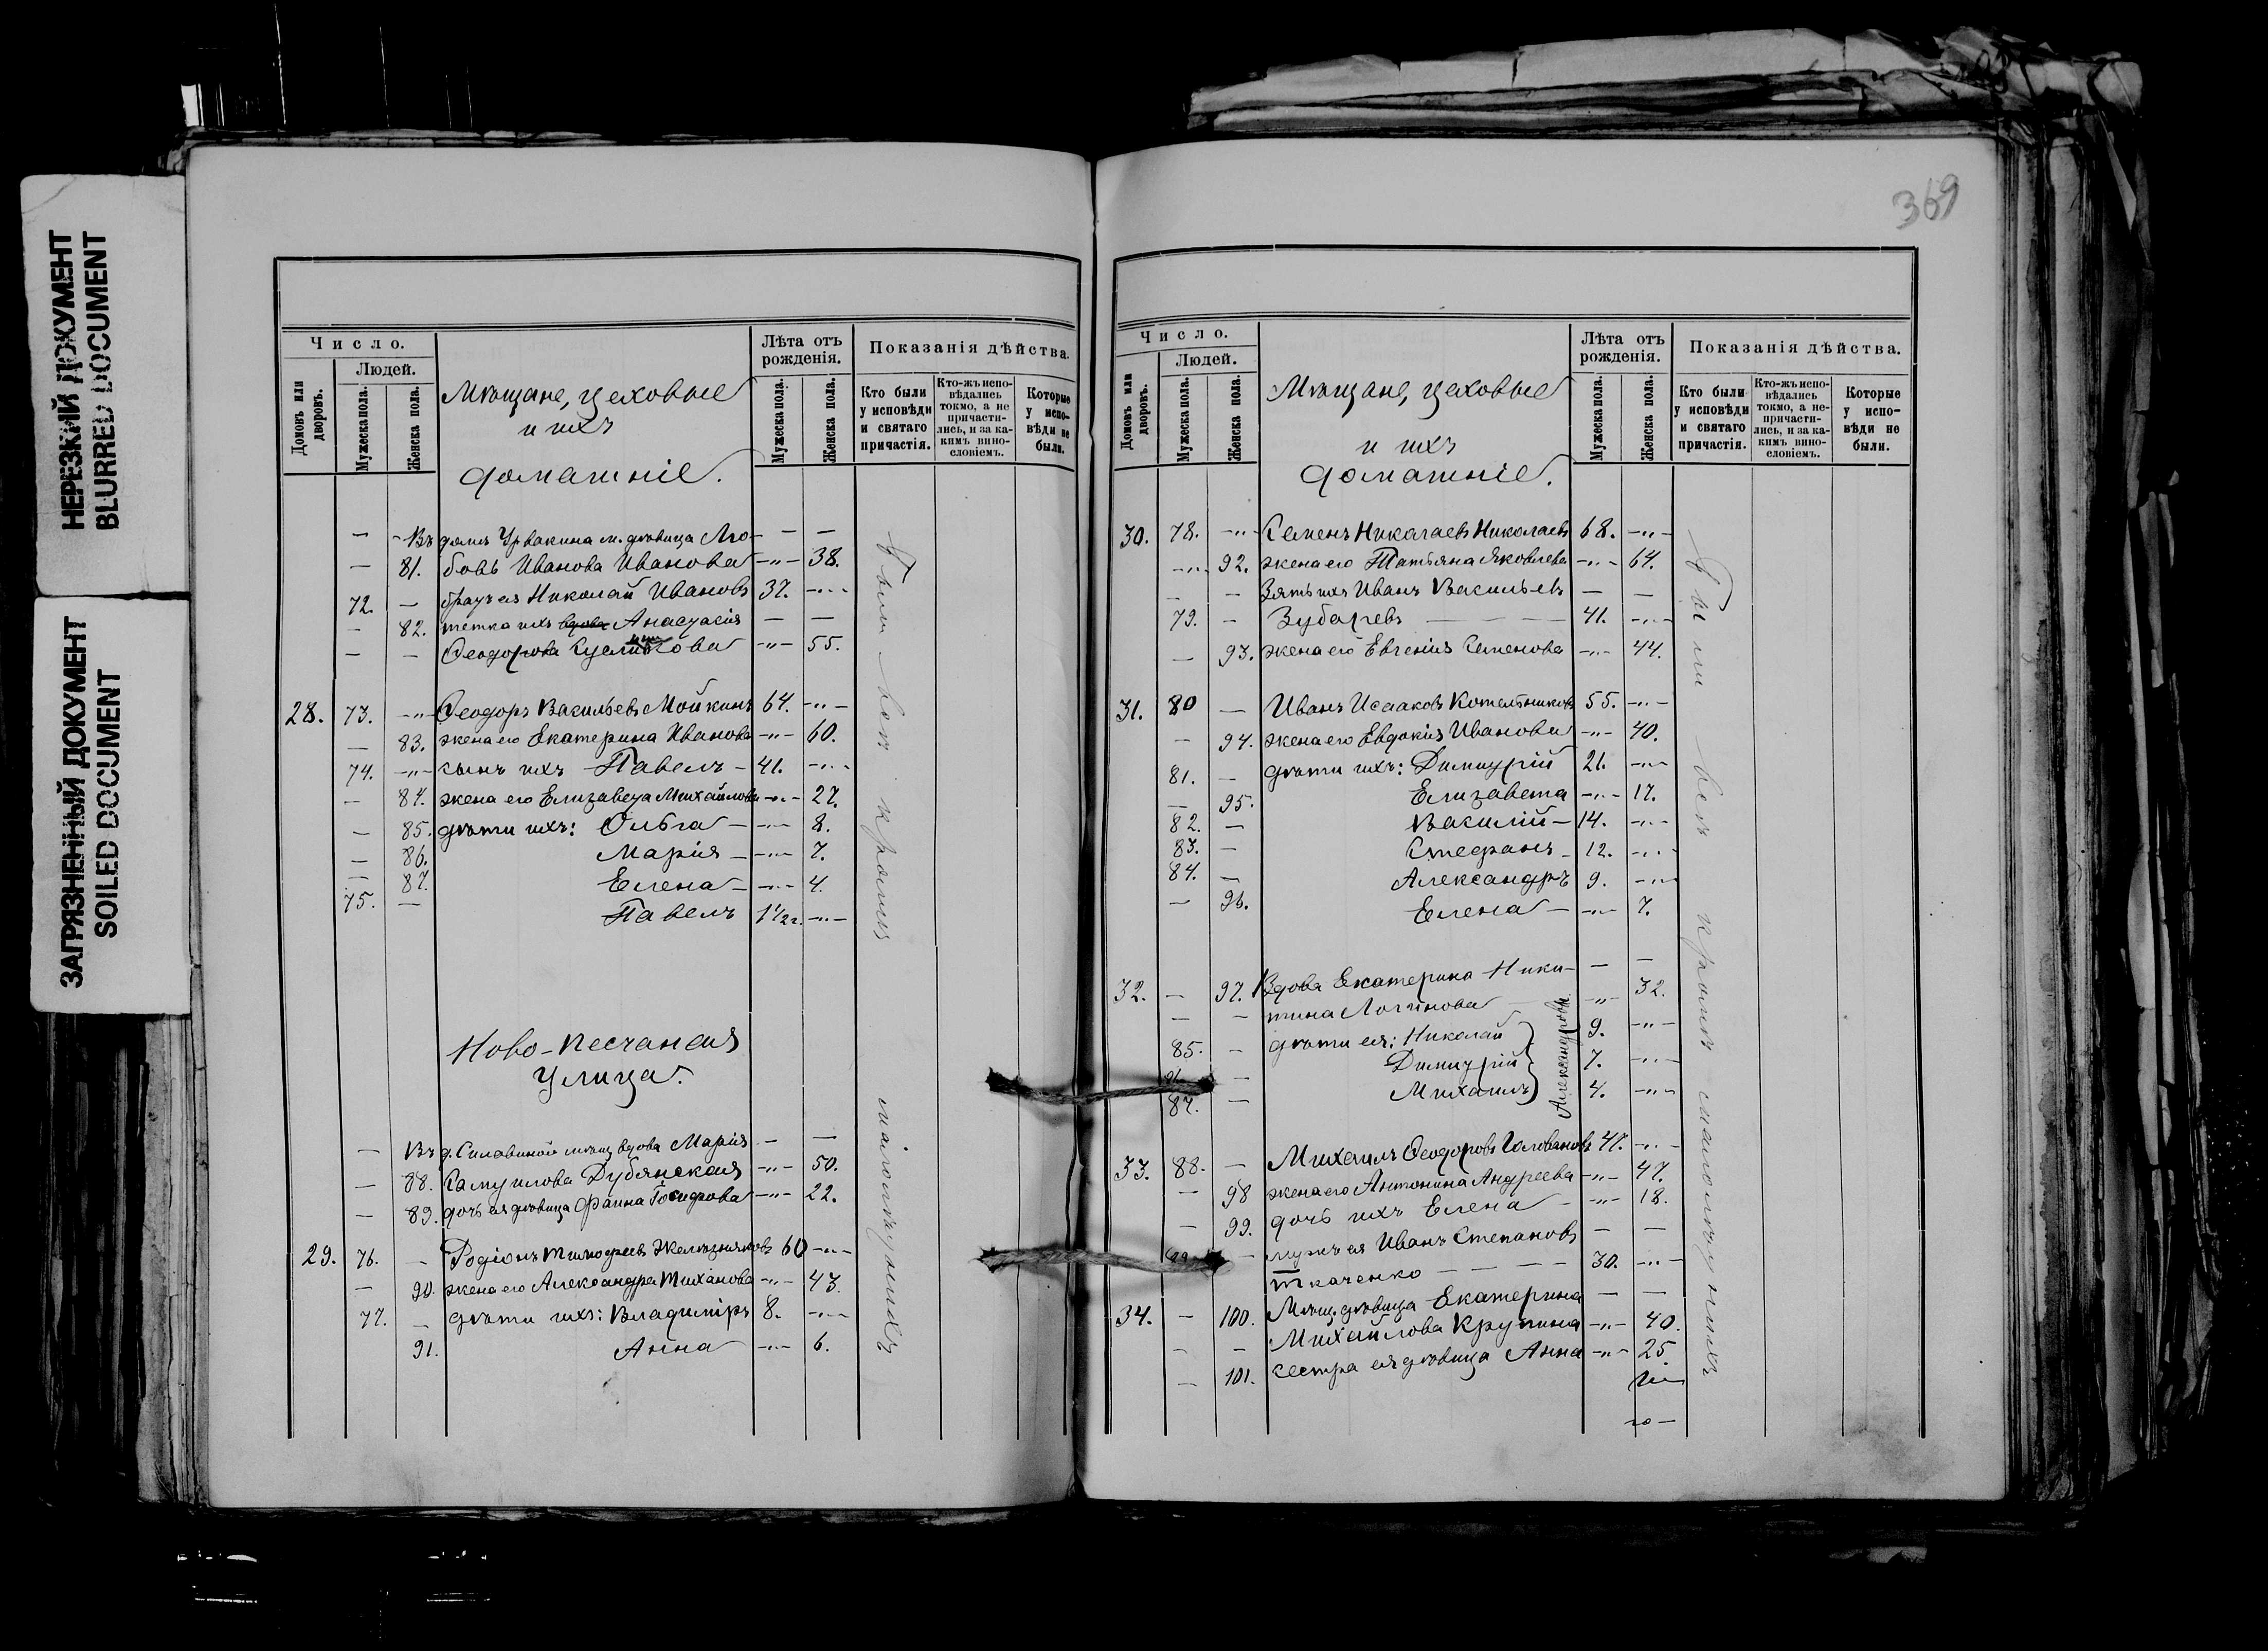 НЕРЕЗКИЙ ДОКУМЕНТ
BLURRED DOCUMENT
ЗАГРЯЗНЕННЫЙ ДОКУМЕНТ
SOILED DOCUMENT
Число.
Людей.
Домовъ или дворовъ.
Мужеска пола.
Женска пола.
Мѣщане, цеховые
и ихъ
домашніе.
Лѣта отъ рожденія.
Мужеска пола.
Женска пола.
Показанія дѣйства.
Кто были у исповѣди и святаго причастія.
Кто-жъ исповѣдались токмо, а не причастились, и за какимъ винословіемъ.
Которые у исповѣди не были.
— - Въ домѣ м. дѣвица Лю- — —
— 81. бовь Иванова Иванова -"- 38.
72. — братъ ея Николай Ивановъ 37. -"-
- 82. тетка ихъ вдова Анастасія — —
— — Ѳеодорова -"- 55.
28. 73. -"- Ѳеодоръ Васильевъ Мойкинъ 64. -"-
— 83. жена его Екатерина Иванова -"- 60.
74. -"- сынъ ихъ Павелъ - 41. -"-
— 84. жена его Елизавета Михайлова -"- 27.
— 85. дѣти ихъ: Ольга — -"- 8.
— 86. Марія — -"- 7.
— 87. Елена — -"- 4.
75. — Павелъ 1½ г. -"-
Ново-Песчаная
улица.
— Въ д. Силавиной мѣщ. вдова Марія — —
— 88. Самуилова Дубянская -"- 50.
— 89. дочь ея дѣвица Фаина Іосифова -"- 22.
29. 76. — Родіонъ Тимофеевъ Желѣзняковъ 60 -"-
— 90. жена его Александра Тиханова -"- 43.
77. — дѣти ихъ: Владиміръ 8. -"-
91. Анна -"- 6.
Были всѣ кромѣ малолѣтнихъ
369
Число.
Людей.
Домовъ или дворовъ.
Мужеска пола.
Женска пола.
Мѣщане, цеховые
и ихъ
домашніе.
Лѣта отъ рожденія.
Мужеска пола.
Женска пола.
Показанія дѣйства.
Кто были у исповѣди и святаго причастія.
Кто-жъ исповѣдались токмо, а не-причастились, и за какимъ винословіемъ.
Которые у исповѣди не были.
30. 78. -"- Семенъ Николаевъ Николаевъ 68. -"-
-"- 92. жена его Татьяна Яковлева -"- 64.
— — Зять ихъ Иванъ Васильевъ — —
79. - Зубаревъ — — — — 41. -"-
— 93. жена его Евгенія Семенова -"- 44.
31. 80 — Иванъ Исааковъ Котельниковъ 55. -"-
— 94. жена его Евдокія Иванова -"- 40.
81. — дѣти ихъ: Димитрій 21. -"-
— 95. Елизавета -"- 17.
82. — Василій — 14. -"-
83. — Стефанъ - 12. -"-
84. — Александръ 9. -"-
— 96. Елена — -"- 7.
32. — 97. Вдова Екатерина Ники- — —
— — тина Логинова -"- 32.
85. - дѣти ея: Николай 9. -"-
— Димитрій 7. -"-
87. — Михаилъ 4. -"-
Александровы.
33. 88. — Михаилъ Ѳеодоровъ Головановъ 47. -"-
— 98 жена его Антонина Андреева -"- 47.
— 99. дочь ихъ Елена - -"- 18.
89 — мужъ ея Иванъ Степановъ — —
Ткаченко — — — — 30. -"-
34. — 100. Мѣщ. дѣвица Екатерина — —
— — Михайлова Крупина -"- 40.
— 101. сестра ея дѣвица Анна -"- 25.
Были всѣ кромѣ малолѣтнихъ